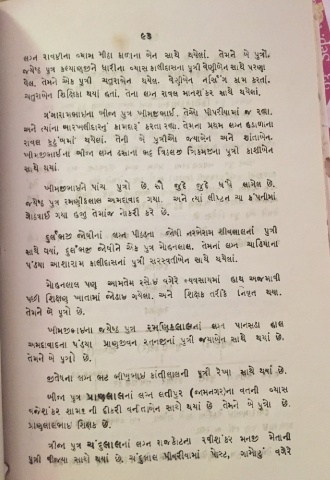 ૯૩
લગ્ન રાવકીના વ્યાસ મીઠા કાળાના બેન સાથે થયેલાં. તેમને બે પુત્રી,
જ્યેષ્ઠ પુત્ર કલ્યાણજીને ધારીના વ્યાસ કાલીદાસના પુત્રી વેણીબેન સાથે પરણા
વેલ. તેમને એક પુત્રી ચતુરાબેન થયેલ. વેણીબેન નર્સિંગ કામ કરતાં.
ચતુરાબેન શિક્ષિકા થયા હતાં. તેના લગ્ન રાવલ માનશંકર સાથે થયેલાં.
જેરામભાઈના બીજા પુત્ર ખીમજીભાઈ. તેઓ પીપરીયામાં જ રહ્યા.
અને ત્યાંના ભારખલીદારનું કામદારું કરતા રહ્યા. તેમના પ્રથમ લગ્ન હાળાના
રાવલ કુટુંબમાં થયેલાં. તેની બે પુત્રીઓ જયાબેન અને શાંતાબેન.
ખીમજીભાઈના બીજા લગ્ન ભટ્ટ ત્રિકમજીના પુત્રી કાશીબેન
સાથે થયાં.
ખીમજીભાઈને પાંચ પુત્રો છે. સૌ જુદે જુદે ધંધે લાગેલ છે.
જ્યેષ્ઠ પુત્ર રમણીકલાલ અમદાવાદ ગયા. અને ત્યાં લીપ્ટન ચા કંપનીમાં
જોડાઈ ગયા હજી તેમાંજ નોકરી કરે છે.
દુર્લભજી જોષીનાં લગ્ન પીઠડના જોષી નરભેરામ શીવલાલનાં પુત્રી
સાથે થયાં, દુર્લભજી જોષીને એક પુત્ર મોહનલાલ. તેમનાં લગ્ન ચાડિયાના
પંડ્યા આશારામ કાલીદાસનાં પુત્રી સરસ્વતીબેન સાથે થયેલાં.
મોહનલાલ પણ આમતેમ રસોઈ વગેરે વ્યવસાયમાં હાથ અજમાવી
પછી શિક્ષણ ખાતામાં જોડાઈ ગયેલા. અને શિક્ષક તરીકે નિવૃત્ત થયા.
તેમને બે પુત્રો છે.
ખીમજીભાઈના જ્યેષ્ઠ પુત્ર રમણિકલાલનાં લગ્ન પાનસડા હાલ
અમદાવાદના પંડ્યા પ્રાણજીવન રતનજીનાં પુત્રી જયાબેન સાથે થયાં છે.
તેમને બે પુત્રો છે.
જીતેષના લગ્ન ભટ બાબુભાઈ કાંતીલાલની પુત્રી રેખા સાથે થયાં છે.
બીજા પુત્ર પ્રાણલાલનાં લગ્ન લતીપુર (જામનગર)ના વતની વ્યાસ
શામજીની દીકરી વનીતાબેન સાથે થયાં છે તેમને બે પુત્રો છે.
પ્રાણલાલભાઈ શિક્ષક છે.
ત્રીજા પુત્ર ચંદુલાલનાં લગ્ન રાજકોટના રવીશંકર મનજી મેતાની
પુત્રી વીજયા સાથે થયાં છે. ચંદુલાલ પીપરીયામાં પોસ્ટ, ગામોટું વગેરે